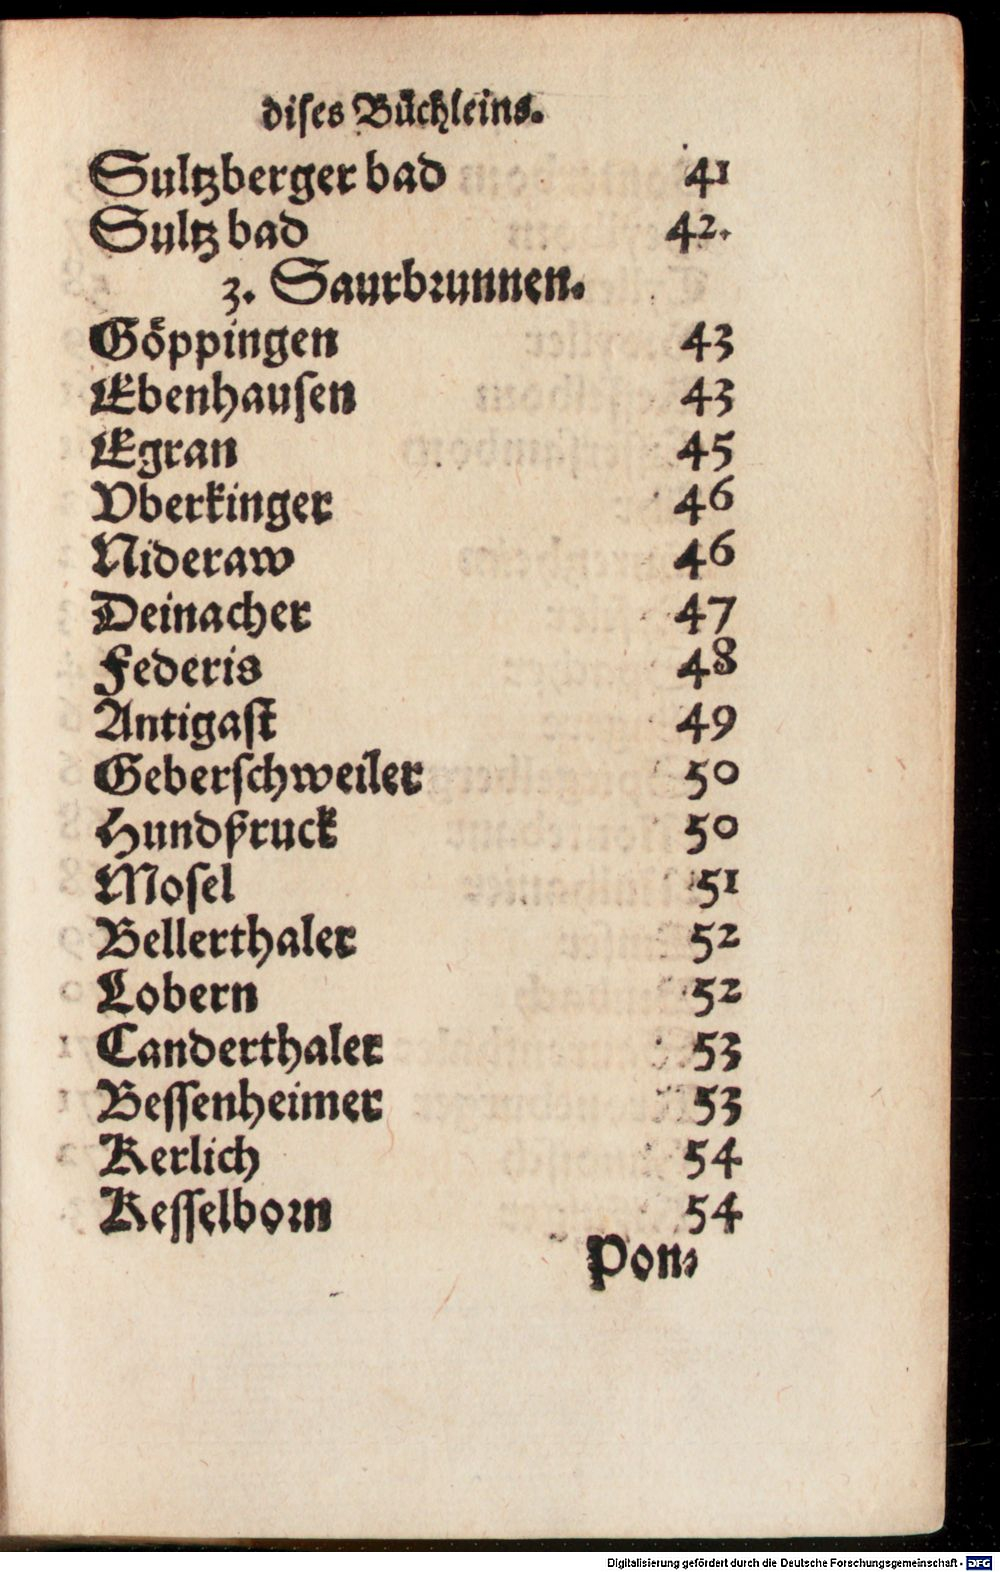 diſes Büchleins.
Sultzberger bad 41
Sultz bad 42.
3. Saurbꝛunnen.
Göppingen 43
Ebenhauſen 43
Egran 45
Vberkinger 46
Nideraw 46
Deinacher 47
Federis 48
Antigaſt 49
Geberſchweiler 50
Hundßruck 50
Moſel 51
Bellerthaler 52
Lobern 52
Canderthaler 53
Beſſenheimer 53
Kerlich 54
Keſſelboꝛn 54
Pon⸗
Digitalisierung gefördert durch die Deutsche Forschungsgemeinschaft - DFG